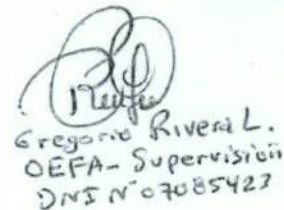 Gregorio Rivera L.
OEFA- Supervisión
DNI Nº 07085423